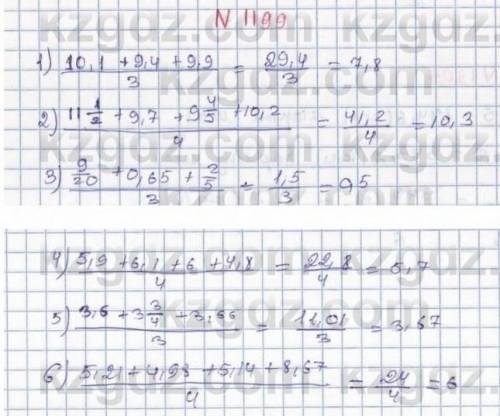 N 1199
1) 10,1 + 9,4 + 9,9 / 3 = 29,4 / 3 = 7,8
2) 11 1/2 + 9,7 + 9 4/5 + 10,2 / 4 = 41,2 / 4 = 10,3
3) 9/20 + 0,65 + 2/5 / 3 = 1,5 / 3 = 0,5
4) 5,9 + 6,1 + 6 + 4,8 / 4 = 22,8 / 4 = 5,7
5) 3,6 + 3 3/4 + 3,66 / 3 = 11,01 / 3 = 3,67
6) 5,21 + 4,98 + 5,14 + 8,67 / 4 = 24 / 4 = 6
kzgdz.com